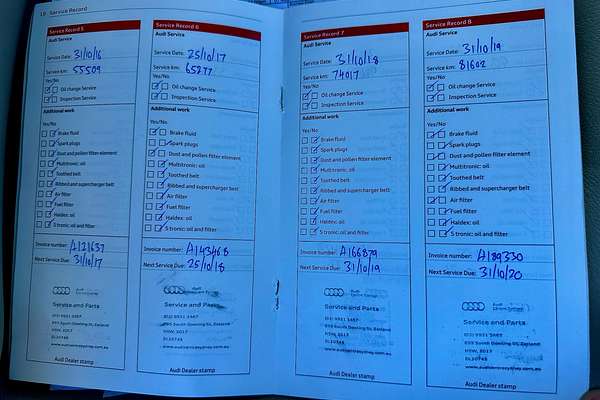 18 Service Record
Service Record 5
Audi Service
Service Date: 31/10/16
Service km: 55509
Yes/No
Oil change Service
Inspection Service
Additional work
Yes/No
Brake fluid
Spark plugs
Dust and pollen filter element
Multitronic: oil
Toothed belt
Ribbed and supercharger belt
Air filter
Fuel filter
Haldex: oil
S tronic: oil and filter
Invoice number: A121637
Next Service Due: 31/10/17
Audi
Service and Parts
(02) 9931 3467
895 South Dowling St, Zetland
NSW, 2017
www.audicentresydney.com.au
Audi Dealer stamp
Service Record 6
Audi Service
Service Date: 25/10/17
Service km: 65877
Yes/No
Oil change Service
Inspection Service
Additional work
Yes/No
Brake fluid
Spark plugs
Dust and pollen filter element
Multitronic: oil
Toothed belt
Ribbed and supercharger belt
Air filter
Fuel filter
Haldex: oil
S tronic: oil and filter
Invoice number: A143468
Next Service Due: 25/10/18
Audi
Service and Parts
895 South Dowling St, Zetland
NSW, 2017
www.audicentresydney.com.au
Audi Dealer stamp
Service Record 7
Audi Service
Service Date: 31/10/18
Service km: 74017
Yes/No
Oil change Service
Inspection Service
Additional work
Yes/No
Brake fluid
Spark plugs
Dust and pollen filter element
Multitronic: oil
Toothed belt
Ribbed and supercharger belt
Air filter
Fuel filter
Haldex: oil
S tronic: oil and filter
Invoice number: A166879
Next Service Due: 31/10/19
Audi
Service and Parts
895 South Dowling St, Zetland
NSW, 2017
www.audicentresydney.com.au
Audi Dealer stamp
Service Record 8
Audi Service
Service Date: 31/10/19
Service km: 81602
Yes/No
Oil change Service
Inspection Service
Additional work
Yes/No
Brake fluid
Spark plugs
Dust and pollen filter element
Multitronic: oil
Toothed belt
Ribbed and supercharger belt
Air filter
Fuel filter
Haldex: oil
S tronic: oil and filter
Invoice number: A189330
Next Service Due: 31/10/20
Audi
Service and Parts
895 South Dowling St, Zetland
NSW, 2017
www.audicentresydney.com.au
Audi Dealer stamp